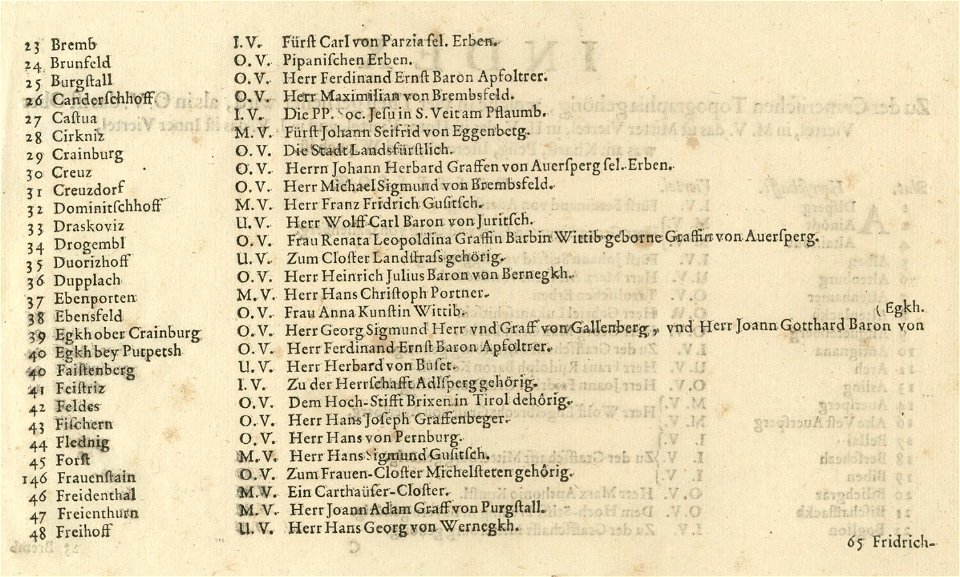 23 Bremb I. V. Fürſt Carl von Parzia ſel. Erben.
24 Brunfeld O. V. Pipaniſchen Erben.
25 Burgſtall O. V. Herr Ferdinand Ernſt Baron Apfoltrer.
26 Canderſchhoff O. V. Herr Maximilian von Brembsfeld.
27 Caſtua I. V. Die PP. Soc. Jeſu in S. Veit am Pflaumb.
28 Cirkniz M. V. Fürſt Johann Seifrid von Eggenberg.
29 Crainburg O. V. Die Stadt Landsfürſtlich.
30 Creuz O. V. Herrn Johann Herbard Graffen von Auerſperg ſel. Erben.
31 Creuzdorf O. V. Herr Michael Sigmund von Brembsfeld.
32 Dominitſchhoff M. V. Herr Franz Fridrich Guſitſch.
33 Draskoviz U. V. Herr Wolff Carl Baron von Juritſch.
34 Drogembl O. V. Frau Renata Leopoldina Graffin Barbin Wittib geborne Graffin von Auerſperg.
35 Duorizhoff U. V. Zum Cloſter Landſtraſs gehörig.
36 Dupplach O. V. Herr Heinrich Julius Baron von Bernegkh.
37 Ebenporten M. V. Herr Hans Chriſtoph Portner.
38 Ebensfeld O. V. Frau Anna Kunſtin Wittib. (Egkh.
39 Egkhober Crainburg O. V. Herr Georg Sigmund Herr vnd Graff von Gallenberg, vnd Herr Joann Gotthard Baron von
40 Egkhbey Putpetsh O. V. Herr Ferdinand Ernſt Baron Apfoltrer.
40 Faiſtenberg U. V. Herr Herbard von Buſet.
41 Feiſtriz I. V. Zu der Herrſchafft Adlſperg gehörig.
42 Feldes O. V. Dem Hoch-Stifft Brixen in Tirol dehörig.
43 Fiſchern O. V. Herr Hans Joſeph Graffenbeger.
44 Flednig O. V. Herr Hans von Pernburg.
45 Forſt M. V. Herr Hans Sigmund Guſitſch.
146 Frauenſtain O. V. Zum Frauen-Cloſter Michelſteten gehörig.
46 Freidenthal M. V. Ein Carthauſer-Cloſter.
47 Freienthurn M. V. Herr Joann Adam Graff von Purgſtall.
48 Freihoff U. V. Herr Hans Georg von Wernegkh.
65 Fridrich-